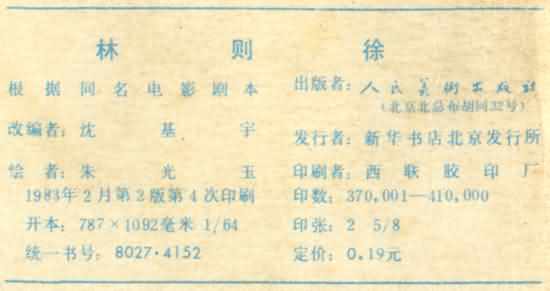 林则徐
根据同名电影剧本
改编者：沈基宇
绘者：朱光玉
1983年2月第2版第4次印刷
开本：787×1092毫米 1/64
统一书号：8027·4152
出版者：人民美术出版社
（北京北总布胡同32号）
发行者：新华书店北京发行所
印刷者：西联胶印厂
印数：370,001—410,000
印张：2 5/8
定价：0.19元